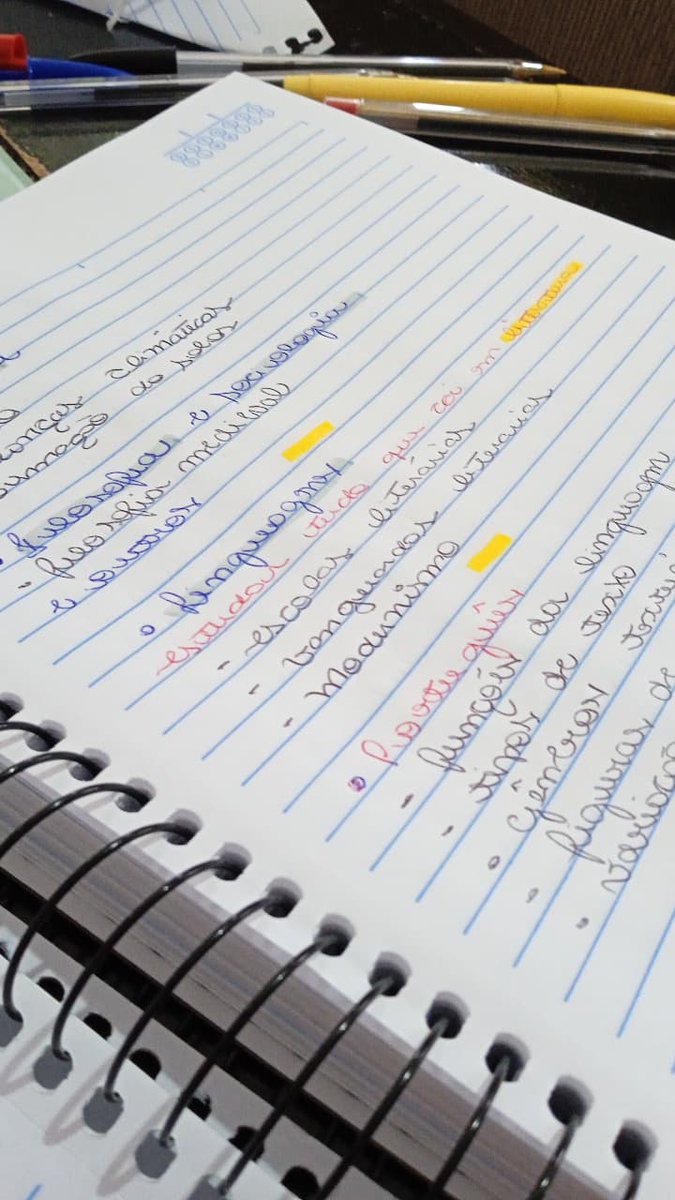 climáticas
do solos
• Filosofia e sociologia
- filosofia medieval
e outros
• Linguagens
estudar tudo que cai em literatura
- escolas literárias
- Vanguardas literarias
- Modernismo
• Português
- funções da linguagem
- tipos de texto
• Gêneros
- figuras de